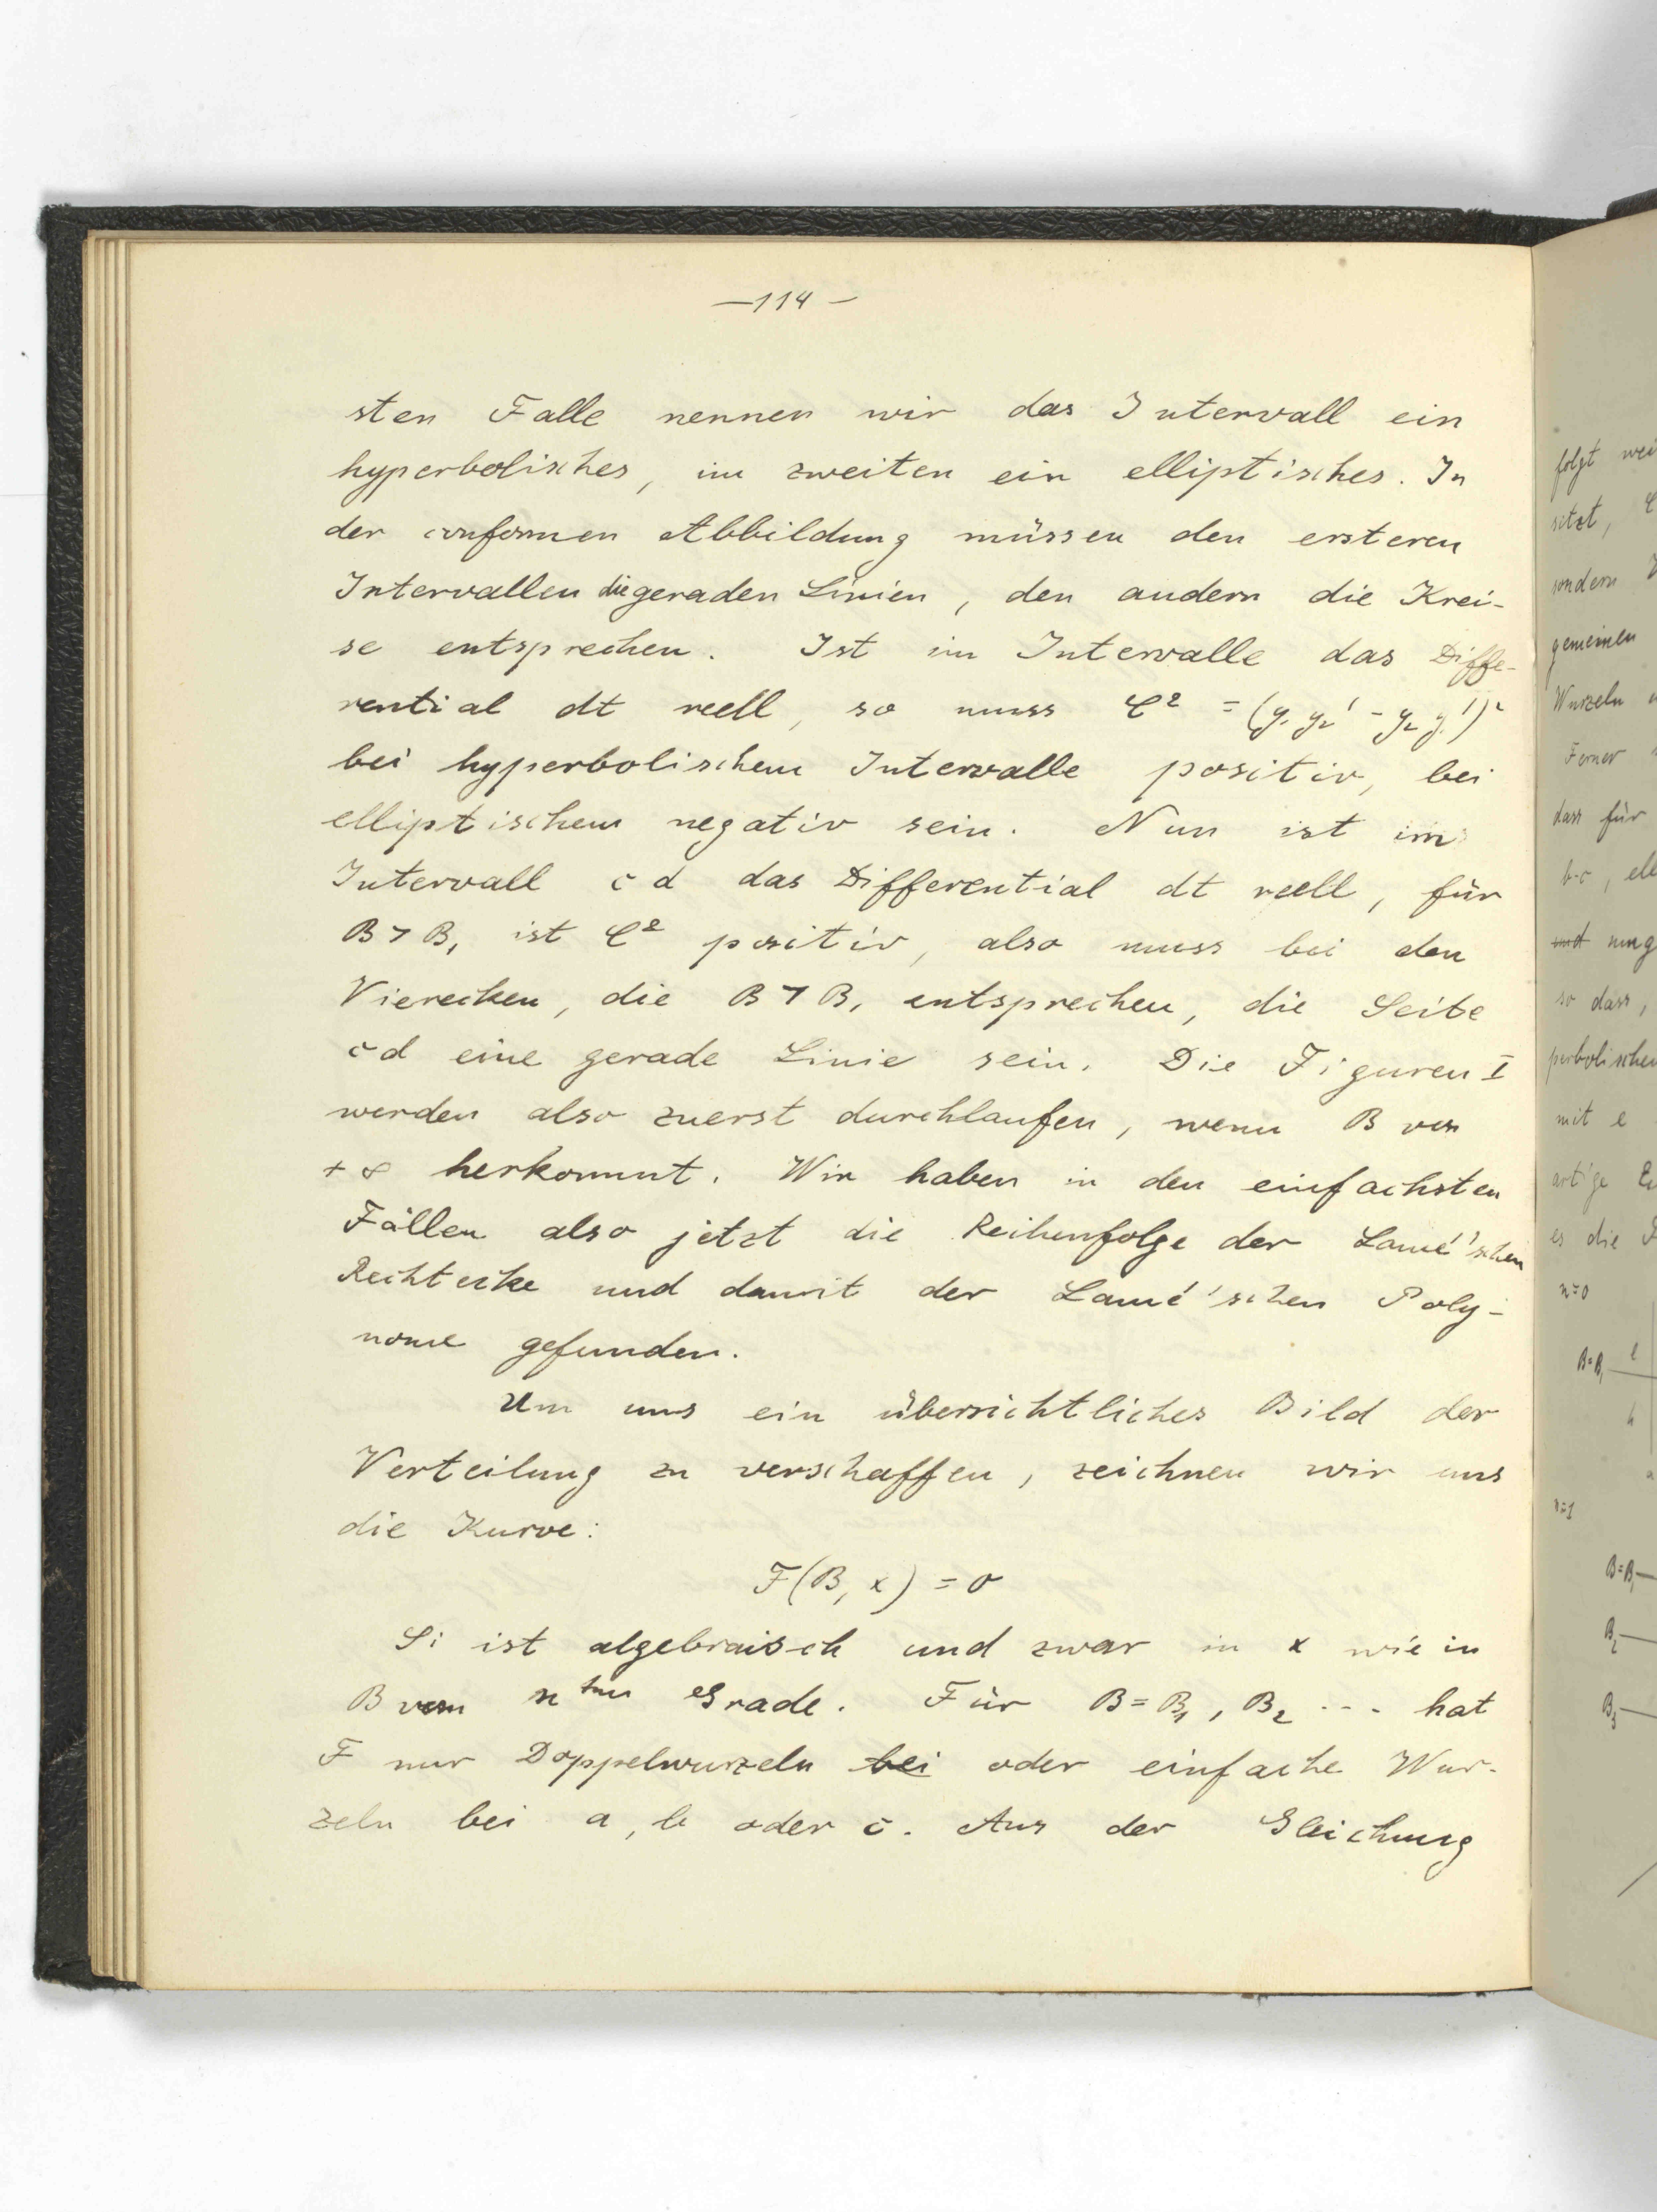 —114—
sten Falle nennen wir das Intervall ein
hyperbolisches, im zweiten ein elliptisches. In
der conformen Abbildung müssen den ersteren
Intervallen die geraden Linien, den andern die Krei-
se entsprechen. Ist im Intervalle das Diffe-
rential dt reell, so muss C² = (y₁ y₂' - y₂ y₁')²
bei hyperbolischem Intervalle positiv, bei
elliptischem negativ sein. Nun ist im
Intervall c d das Differential dt reell, für
B > B₁ ist C² positiv, also muss bei den
Vierecken, die B > B₁ entsprechen, die Seite
cd eine gerade Linie sein. Die Figuren I
werden also zuerst durchlaufen, wenn B von
+ ∞ herkommt. Wir haben in den einfachsten
Fällen also jetzt die Reihenfolge der Lamé'schen
Rechtecke und damit der Lamé'schen Poly-
nome gefunden.
Um uns ein übersichtliches Bild der
Verteilung zu verschaffen, zeichnen wir uns
die Kurve:
F(B, x) = 0
Si ist algebraisch und zwar in x wie in
B vom nten Grade. Für B = B₁, B₂ ... hat
F nur Doppelwurzeln bei oder einfache Wur-
zeln bei a, b oder c. Aus der Gleichung
folgt wei
sitzt,
sondern
gemeinen
Wurzeln
Ferner
dass für
b-c, ell
und ung
so dass,
perbolischen
mit e
artige
es die
n=0
B=B₁ e
h
n=1
B=B₁
B₂
B₃